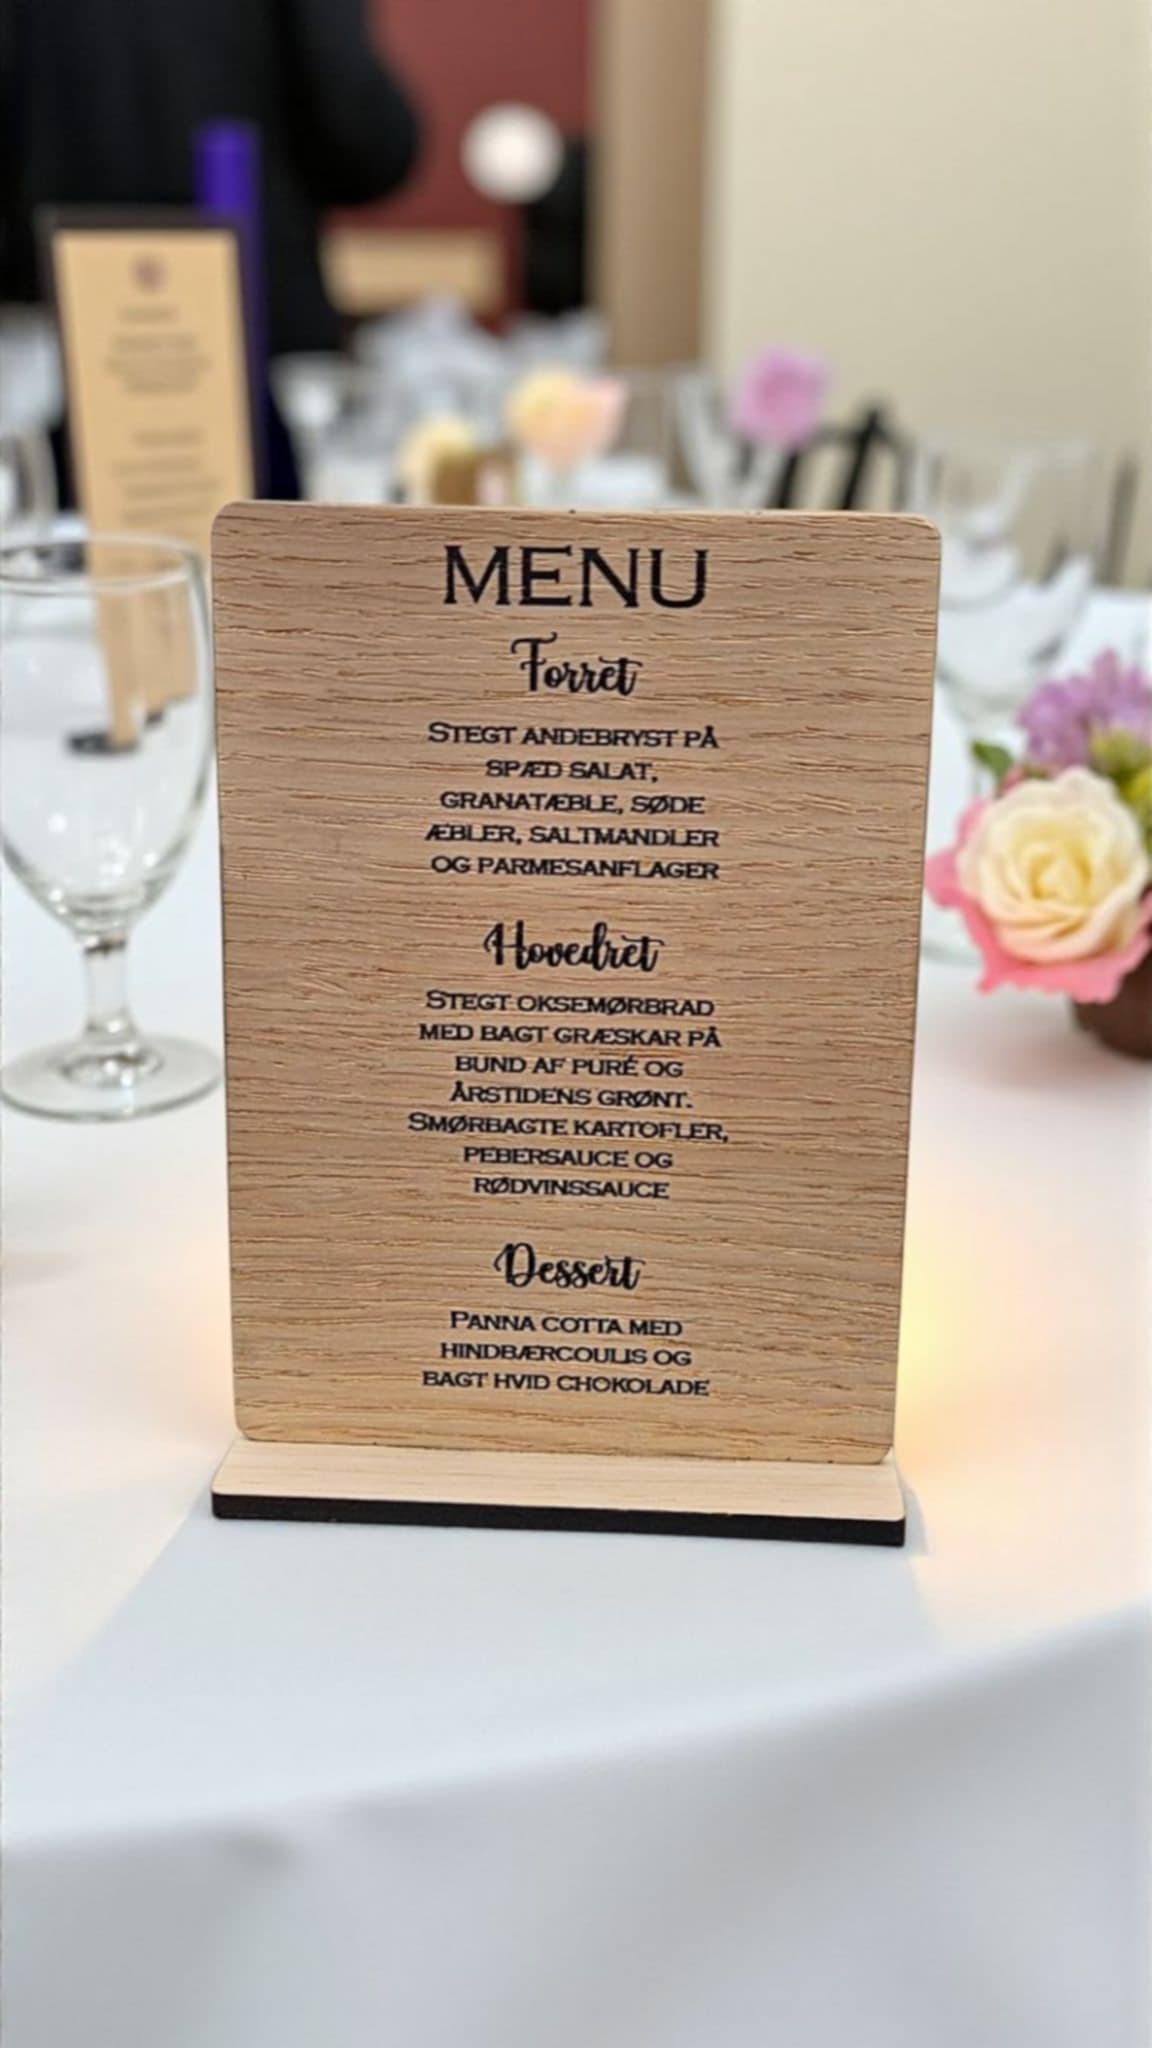 MENU
Forret
STEGT ANDEBRYST PÅ
SPÆD SALAT,
GRANATÆBLE, SØDE
ÆBLER, SALTMANDLER
OG PARMESANFLAGER
Hovedret
STEGT OKSEMØRBRAD
MED BAGT GRÆSKAR PÅ
BUND AF PURÉ OG
ÅRSTIDENS GRØNT.
SMØRBAGTE KARTOFLER,
PEBERSAUCE OG
RØDVINSSAUCE
Dessert
PANNA COTTA MED
HINDBÆRCOULIS OG
BAGT HVID CHOKOLADE